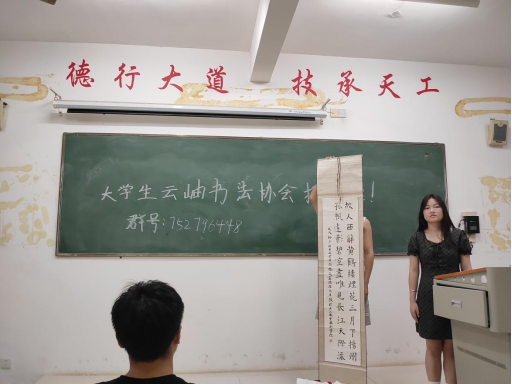 德行大道 技承天工
大学生云岫书法协会招!
群号:752796448
故人西辞黄鹤楼烟花三月下扬州
孤帆远影碧空尽唯见长江天际流